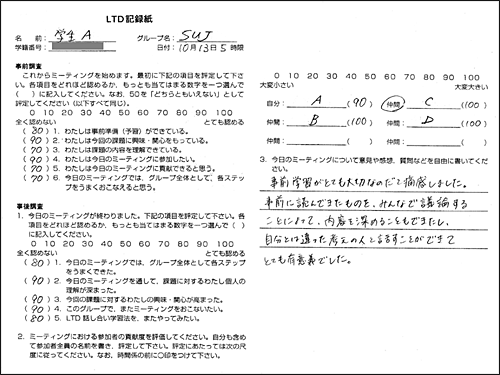 LTD記録紙
名 前：学生A グループ名：SUJ
学籍番号： 日付：10月13日5時限
事前調査
これからミーティングを始めます。最初に下記の項目を評定して下さ
い。各項目をどれほど認めるか、もっとも当てはまる数字を一つ選んで
( )に記入してください。なお、50を「どちらともいえない」として
評定してください（以下すべて同じ）。
0 10 20 30 40 50 60 70 80 90 100
全く認めない とても認める
(80) 1. わたしは事前準備（予習）ができている。
(90) 2. わたしは今回の課題に興味・関心をもっている。
(70) 3. わたしは課題の内容を理解できている。
(90) 4. わたしは今日のミーティングに参加したい。
(70) 5. わたしは今日のミーティングに貢献できると思う。
(70) 6. 今日のミーティングでは、グループ全体として、各ステッ
プをうまくおこなえると思う。
事後調査
1. 今日のミーティングが終わりました。下記の項目を評定して下さい。各
項目をどれほど認めるか、もっとも当てはまる数字を一つ選んで( )
に記入してください。
0 10 20 30 40 50 60 70 80 90 100
全く認めない とても認める
(80) 1. 今日のミーティングでは、グループ全体として各ステップ
をうまくできた。
(90) 2. 今日のミーティングを通して、課題に対するわたし個人の
理解が深まった。
(90) 3. 今回の課題に対するわたしの興味・関心が高まった。
(90) 4. このグループで、またミーティングをおこないたい。
(80) 5. LTD話し合い学習法を、またやってみたい。
2. ミーティングにおける参加者の貢献度を評価してください。自分も含め
て参加者全員の名前を書き、評定して下さい。評定にあたっては次の尺
度に従ってください。なお、時間係の前に○印をつけて下さい。
0 10 20 30 40 50 60 70 80 90 100
大変小さい 大変大きい
自分：A (90) 仲間：C (100)
仲間：B (100) 仲間：D (100)
仲間： ( ) 仲間： ( )
3. 今日のミーティングについて意見や感想、質問などを自由に書いてくだ
さい。
事前学習がとても大切なのだと痛感しました。
事前に読んできたものを、みんなで議論する
ことによって、内容を深めることもできたし、
自分とは違った考えの人と話すことができて
とても有意義でした。